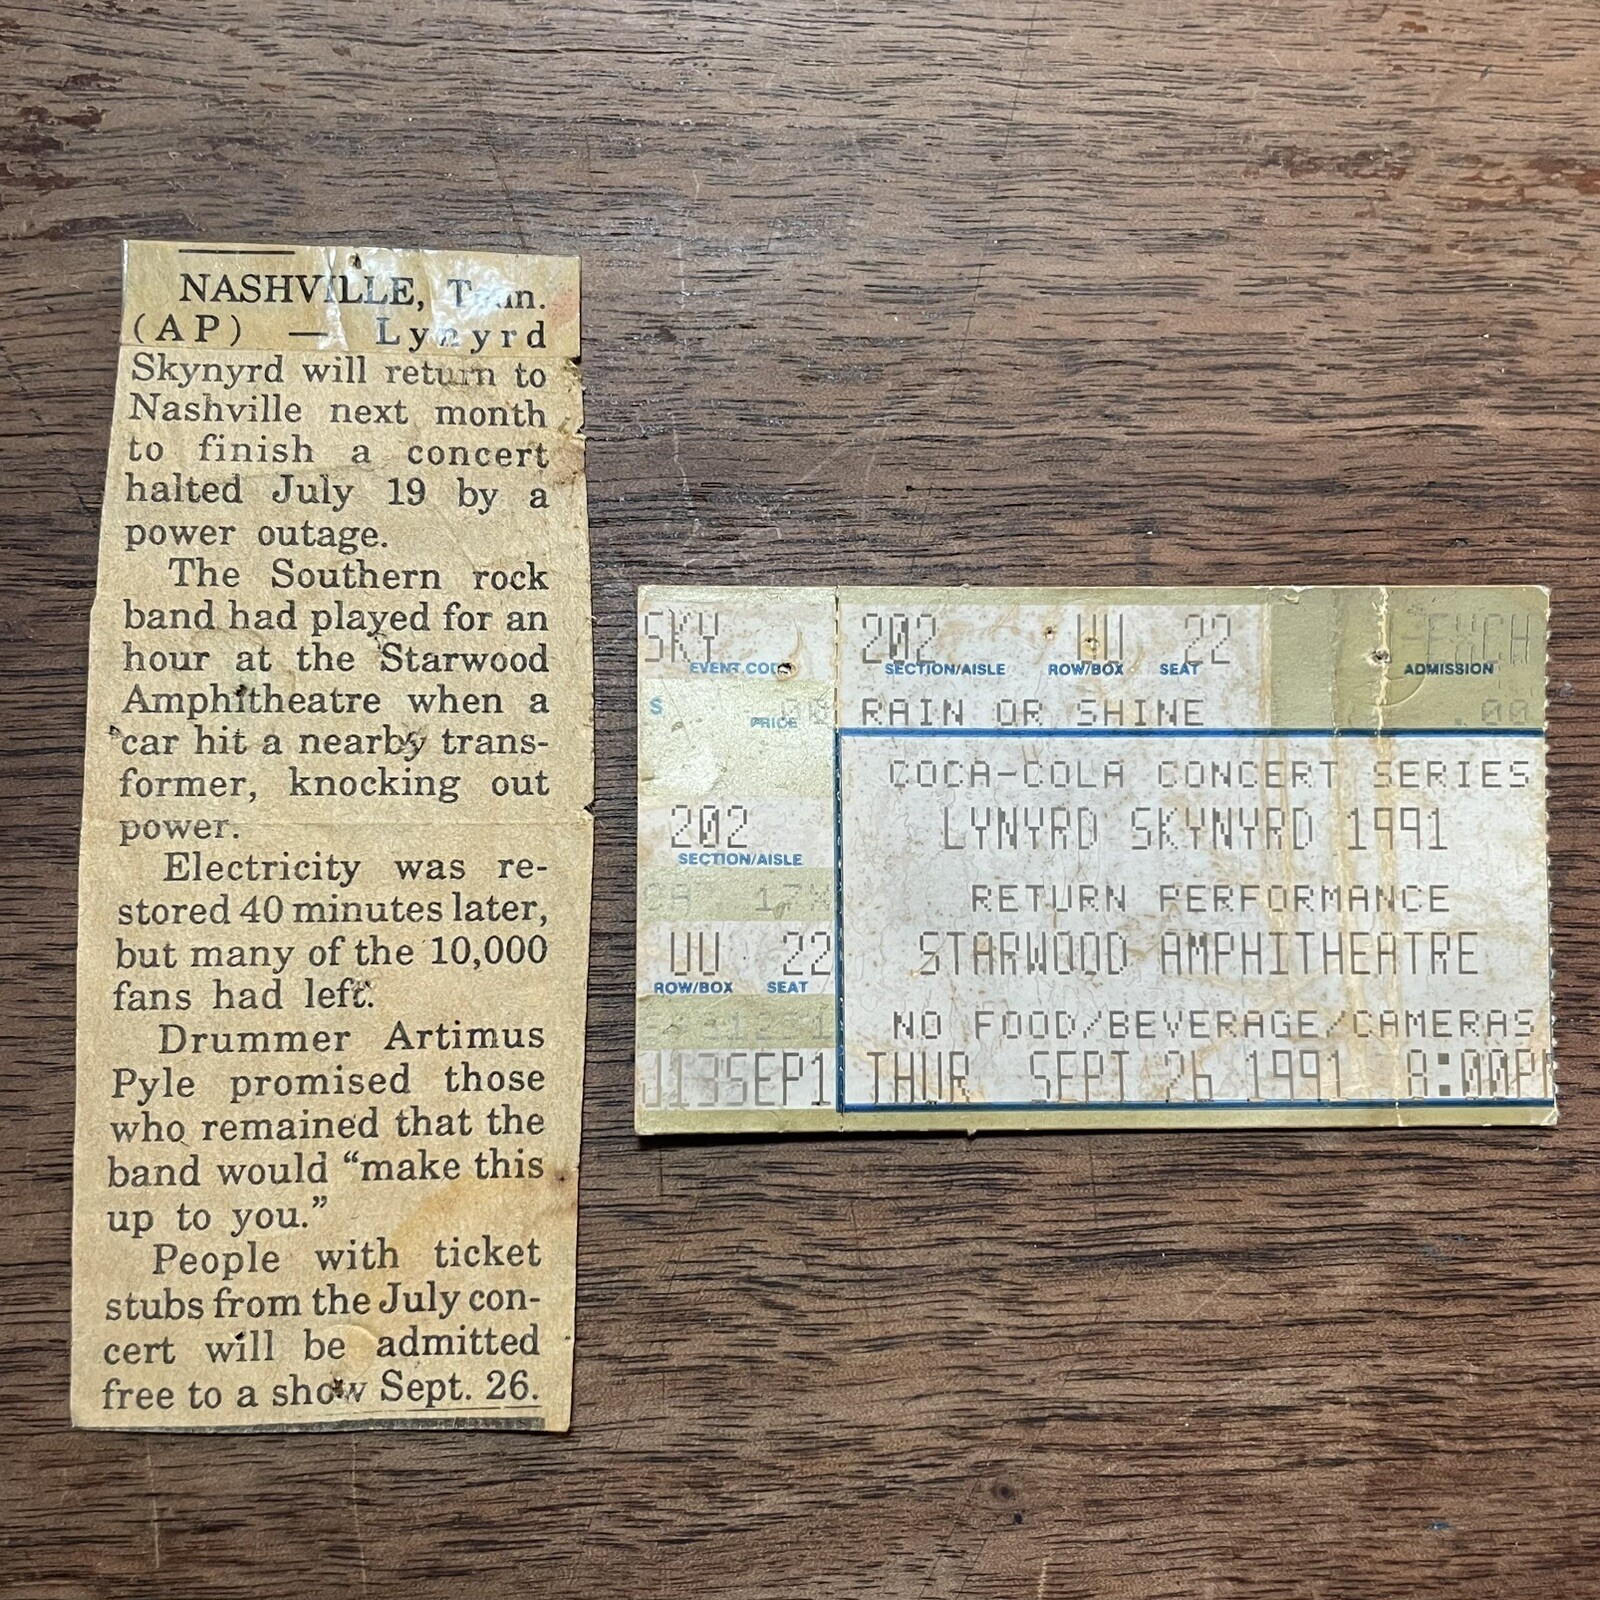 NASHVILLE, Tenn.
(AP) — Lynyrd
Skynyrd will return to
Nashville next month
to finish a concert
halted July 19 by a
power outage.
The Southern rock
band had played for an
hour at the Starwood
Amphitheatre when a
car hit a nearby trans-
former, knocking out
power.
Electricity was re-
stored 40 minutes later,
but many of the 10,000
fans had left.
Drummer Artimus
Pyle promised those
who remained that the
band would “make this
up to you.”
People with ticket
stubs from the July con-
cert will be admitted
free to a show Sept. 26.
SKY
EVENT CODE
$ .00
PRICE
202
SECTION/AISLE
CA 17X
UU 22
ROW/BOX SEAT
U13SEP1
202 UU 22 EXCH
SECTION/AISLE ROW/BOX SEAT ADMISSION
RAIN OR SHINE .00
COCA-COLA CONCERT SERIES
LYNYRD SKYNYRD 1991
RETURN PERFORMANCE
STARWOOD AMPHITHEATRE
NO FOOD/BEVERAGE/CAMERAS
THUR SEPT 26 1991 8:00PM